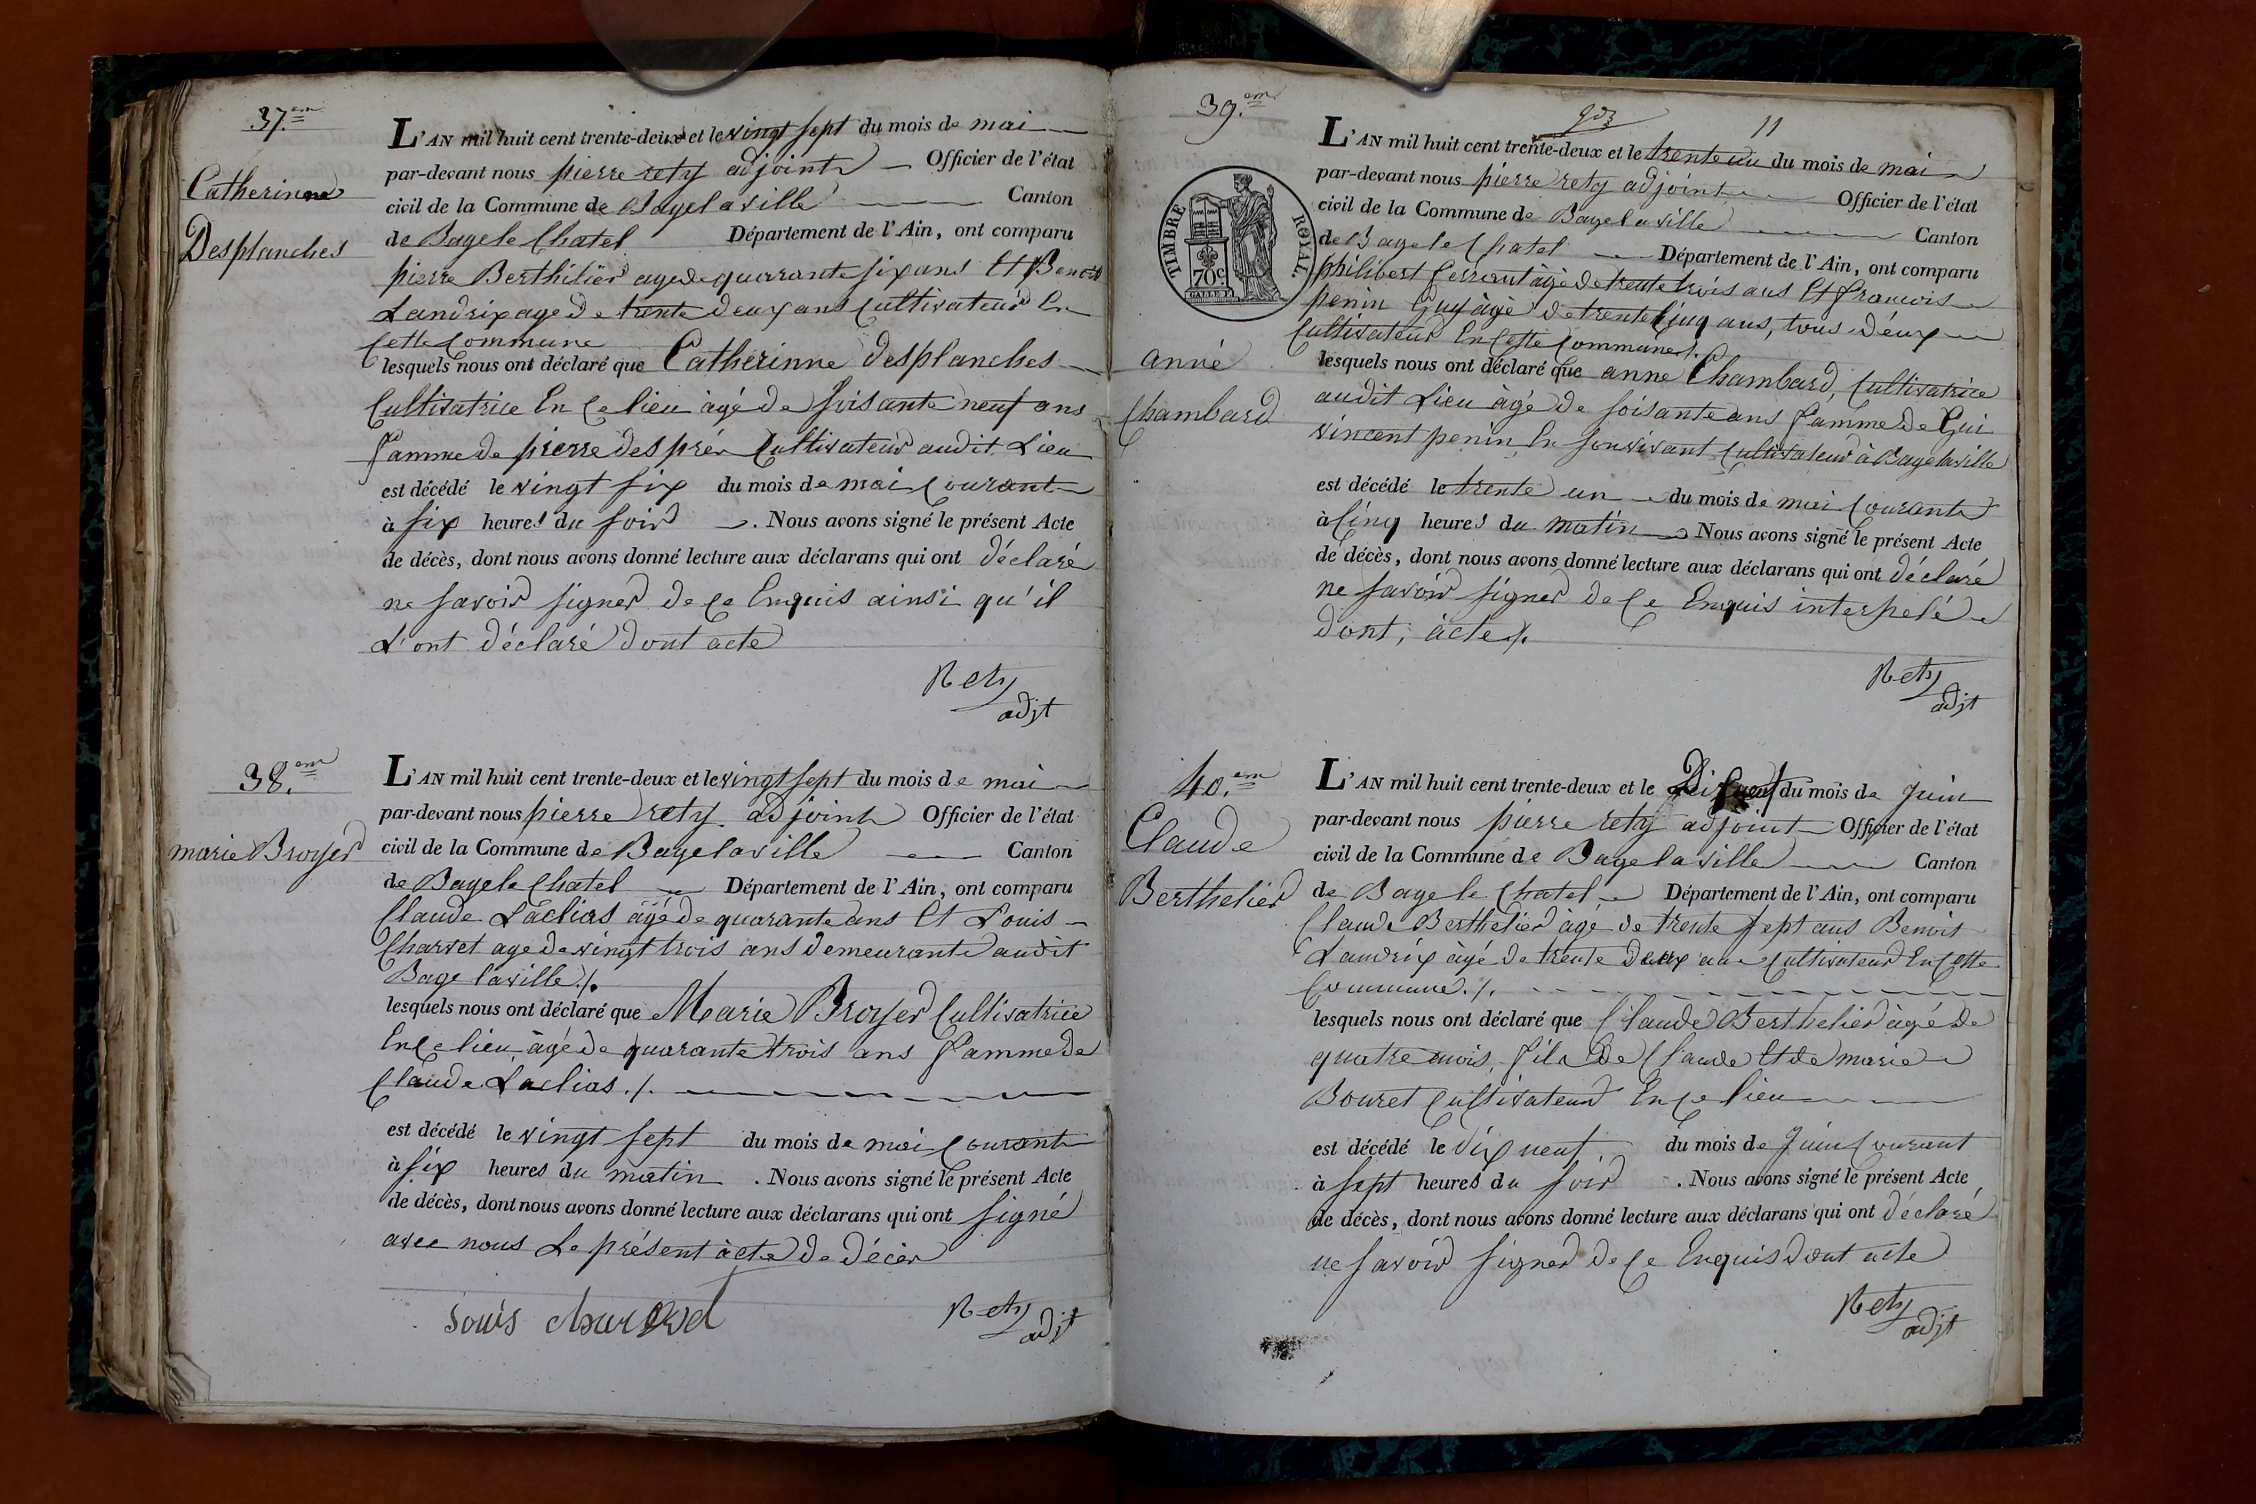 37.em
Catherinne
Desplanches
L'AN mil huit cent trente-deux et le vingt sept du mois de mai
par-devant nous pierre rety adjoint Officier de l'état
civil de la Commune de Bagelaville Canton
de Bage le Chatel Département de l'Ain, ont comparu
pierre Berthilier age de quarante six ans Et Benoit
Landrix age de trente deux ans Cultivateur En
Cette Commune
lesquels nous ont déclaré que Catherinne desplanches
Cultivatrice En Ce lieu àgé de soisante neuf ans
famme de pierre després Cultivateur audit Lieu
est décédé le vingt six du mois de mai Courant
à six heures du soir . Nous avons signé le présent Acte
de décès, dont nous avons donné lecture aux déclarans qui ont déclaré
ne savoir signer de Ce Enquis ainsi qu'il
L'ont déclaré dont acte
Rety
adjt
38.em
marie Broyer
L'AN mil huit cent trente-deux et le vingt sept du mois de mai
par-devant nous pierre rety adjoint Officier de l'état
civil de la Commune de Bagelaville Canton
de Bage le Chatel Département de l'Ain, ont comparu
Claude Laclias àgé de quarante ans Et Louis
Charvet age de vingt trois ans demeurant audit
Bage laville ./.
lesquels nous ont déclaré que Marie Broyer Cultivatrice
En Ce lieu àgé de quarante trois ans famme de
Claude Laclias ./.
est décédé le vingt sept du mois de mai Courant
à six heures du matin . Nous avons signé le présent Acte
de décès, dont nous avons donné lecture aux déclarans qui ont signé
avec nous Le présent àcte de décès
Rety
adjt
39.em
11
TIMBRE ROYAL.
70c
anné
Chambard
L'AN mil huit cent trente-deux et le trente un du mois de mai
par-devant nous pierre rety adjoint Officier de l'état
civil de la Commune de Bage laville Canton
de Bage le Chatel Département de l'Ain, ont comparu
philibert àgé de trente trois ans Et francois
penin Guy àgé de trente Cinq ans, tous deux
Cultivateur En Cette Commune ./.
lesquels nous ont déclaré que anne Chambard, Cultivatrice
audit Lieu àgé de soisante ans famme de Gui
vincent penin En sonvivant Cultivateur à Bagelaville
est décédé le trente un du mois de mai Courant
à Cinq heures du matin Nous avons signé le présent Acte
de décès, dont nous avons donné lecture aux déclarans qui ont déclaré
ne savoir signer de Ce Enquis interpelé
dont, àcte ./.
Rety
adjt
40.em
Claude
Berthelier
L'AN mil huit cent trente-deux et le Dixneuf du mois de Juin
par-devant nous pierre rety adjoint Officier de l'état
civil de la Commune de Bage laville Canton
de Bage le Chatel Département de l'Ain, ont comparu
Claude Berthelier àgé de trente sept ans Benoit
Landrix àgé de trente deux ans Cultivateur En Cette
Commune ./.
lesquels nous ont déclaré que Claude Berthelier àgé de
quatre mois, fils de Claude Et de marie
Bouret Cultivateur En Ce lieu
est décédé le dix neuf . du mois de Juin Courant
à sept heures du soir . Nous avons signé le présent Acte
de décès, dont nous avons donné lecture aux déclarans qui ont déclaré
ne savoir signer de Ce Enquis dont acte
Rety
adjt